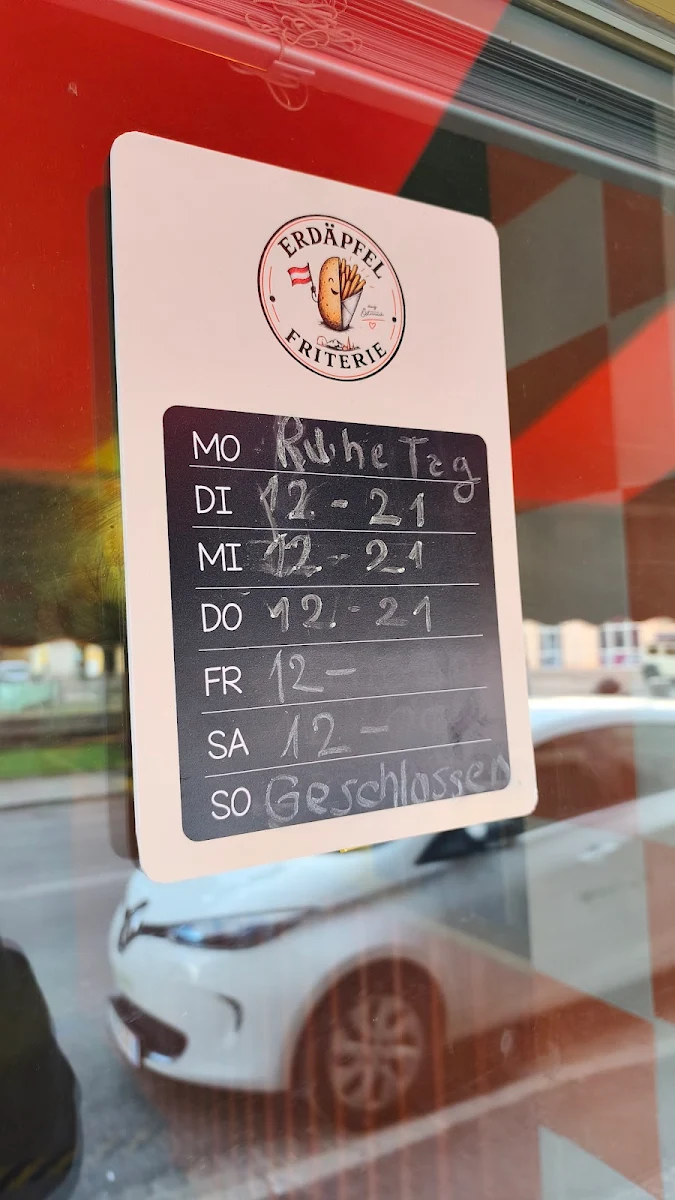 ERDÄPFEL
FRITERIE
MO Ruhe Tag
DI 12 - 21
MI 12 - 21
DO 12 - 21
FR 12 -
SA 12 -
SO Geschlossen